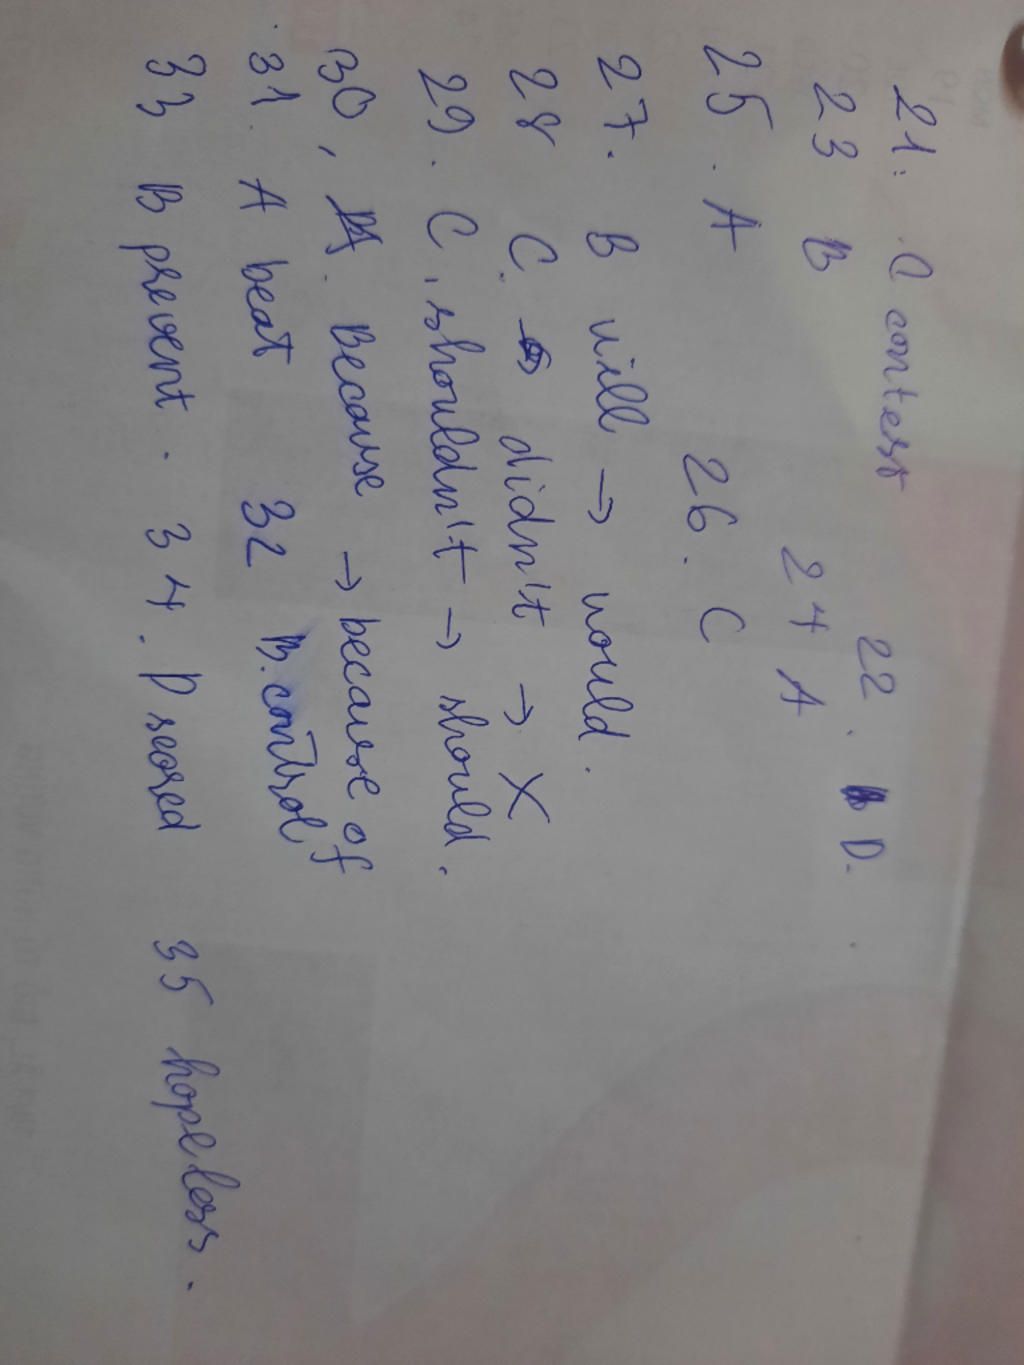 21. C contest 22. D.
23 B 24 A
25. A 26. C
27. B will → would.
28 C. didn't → X
29. C, shouldn't → should.
30, A. Because → because of
31. A beat 32 B. control
33 B prevent. 34. D scored 35 hopeless.